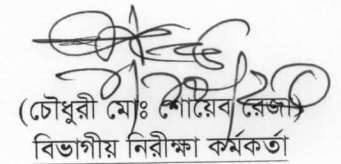 (চৌধুরী মোঃ শোয়েব রেজা)
বিভাগীয় নিরীক্ষা কর্মকর্তা